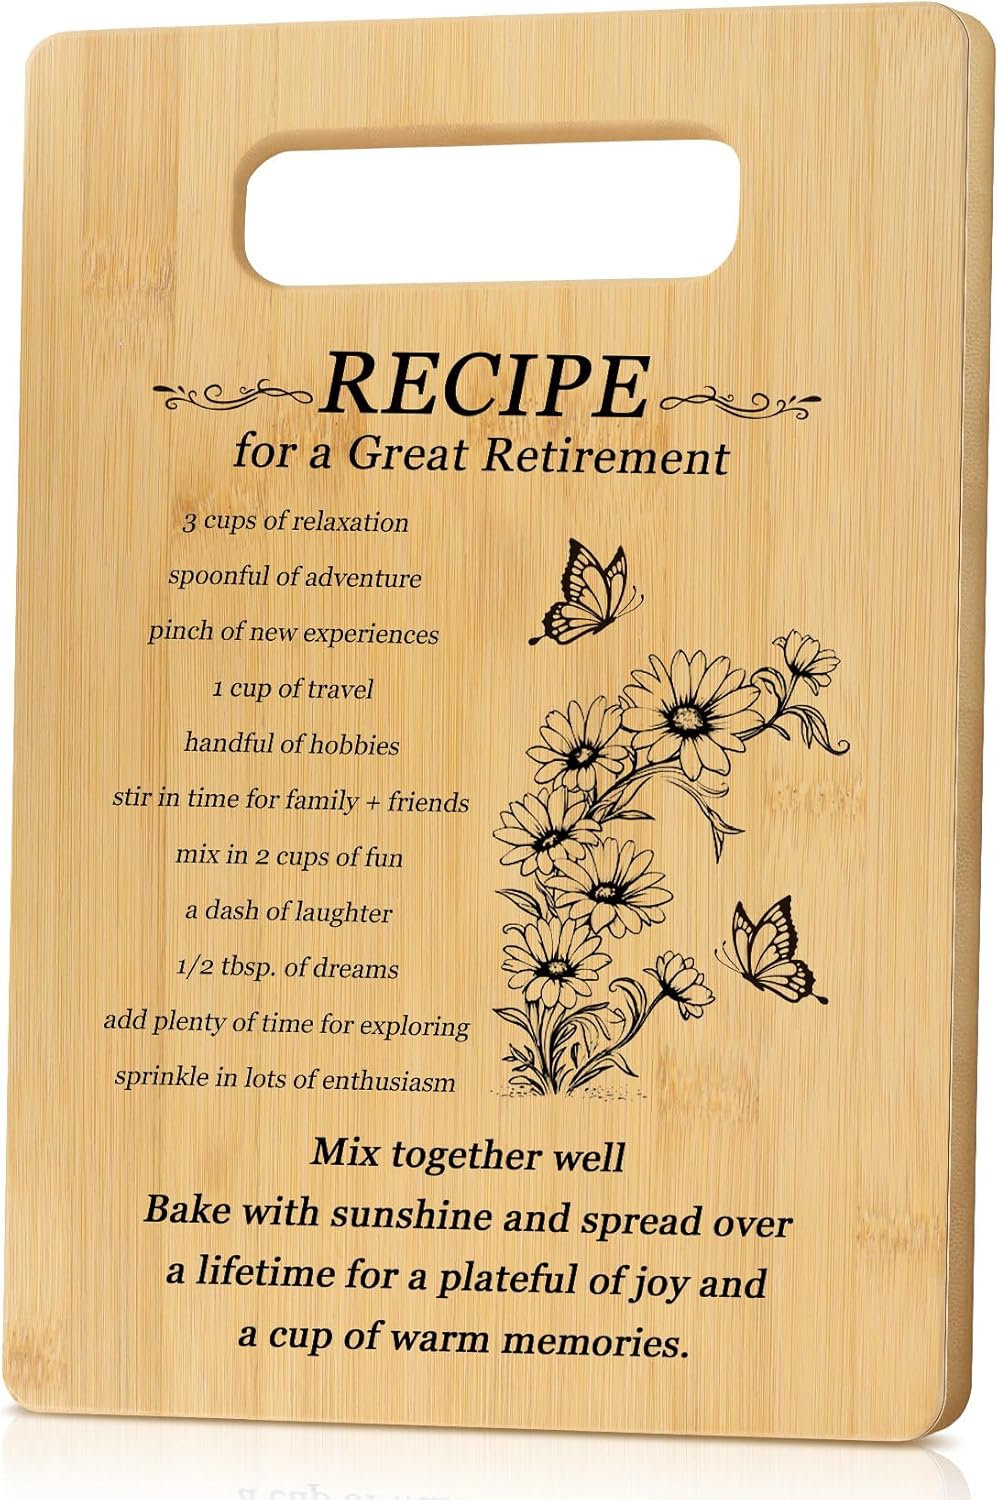 RECIPE
for a Great Retirement
3 cups of relaxation
spoonful of adventure
pinch of new experiences
1 cup of travel
handful of hobbies
stir in time for family + friends
mix in 2 cups of fun
a dash of laughter
1/2 tbsp. of dreams
add plenty of time for exploring
sprinkle in lots of enthusiasm
Mix together well
Bake with sunshine and spread over
a lifetime for a plateful of joy and
a cup of warm memories.